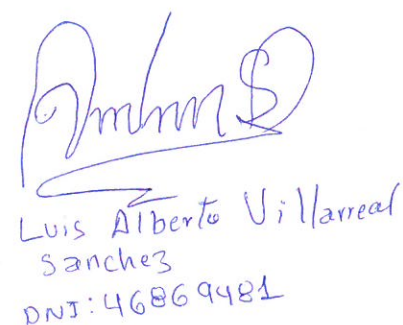 Luis Alberto Villarreal
Sanchez
DNI: 46869481